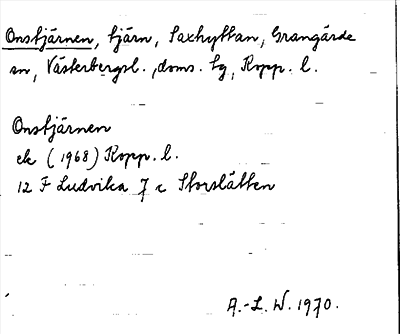 Onstjärnen, tjärn, Saxhyttan, Grangärde
sn, Västerbergsl. doms. tg, Kopp. l.
Onstjärnen
ek (1968) Kopp. l.
12 F Ludvika 7 c Storslätten
A.-L. W. 1970.